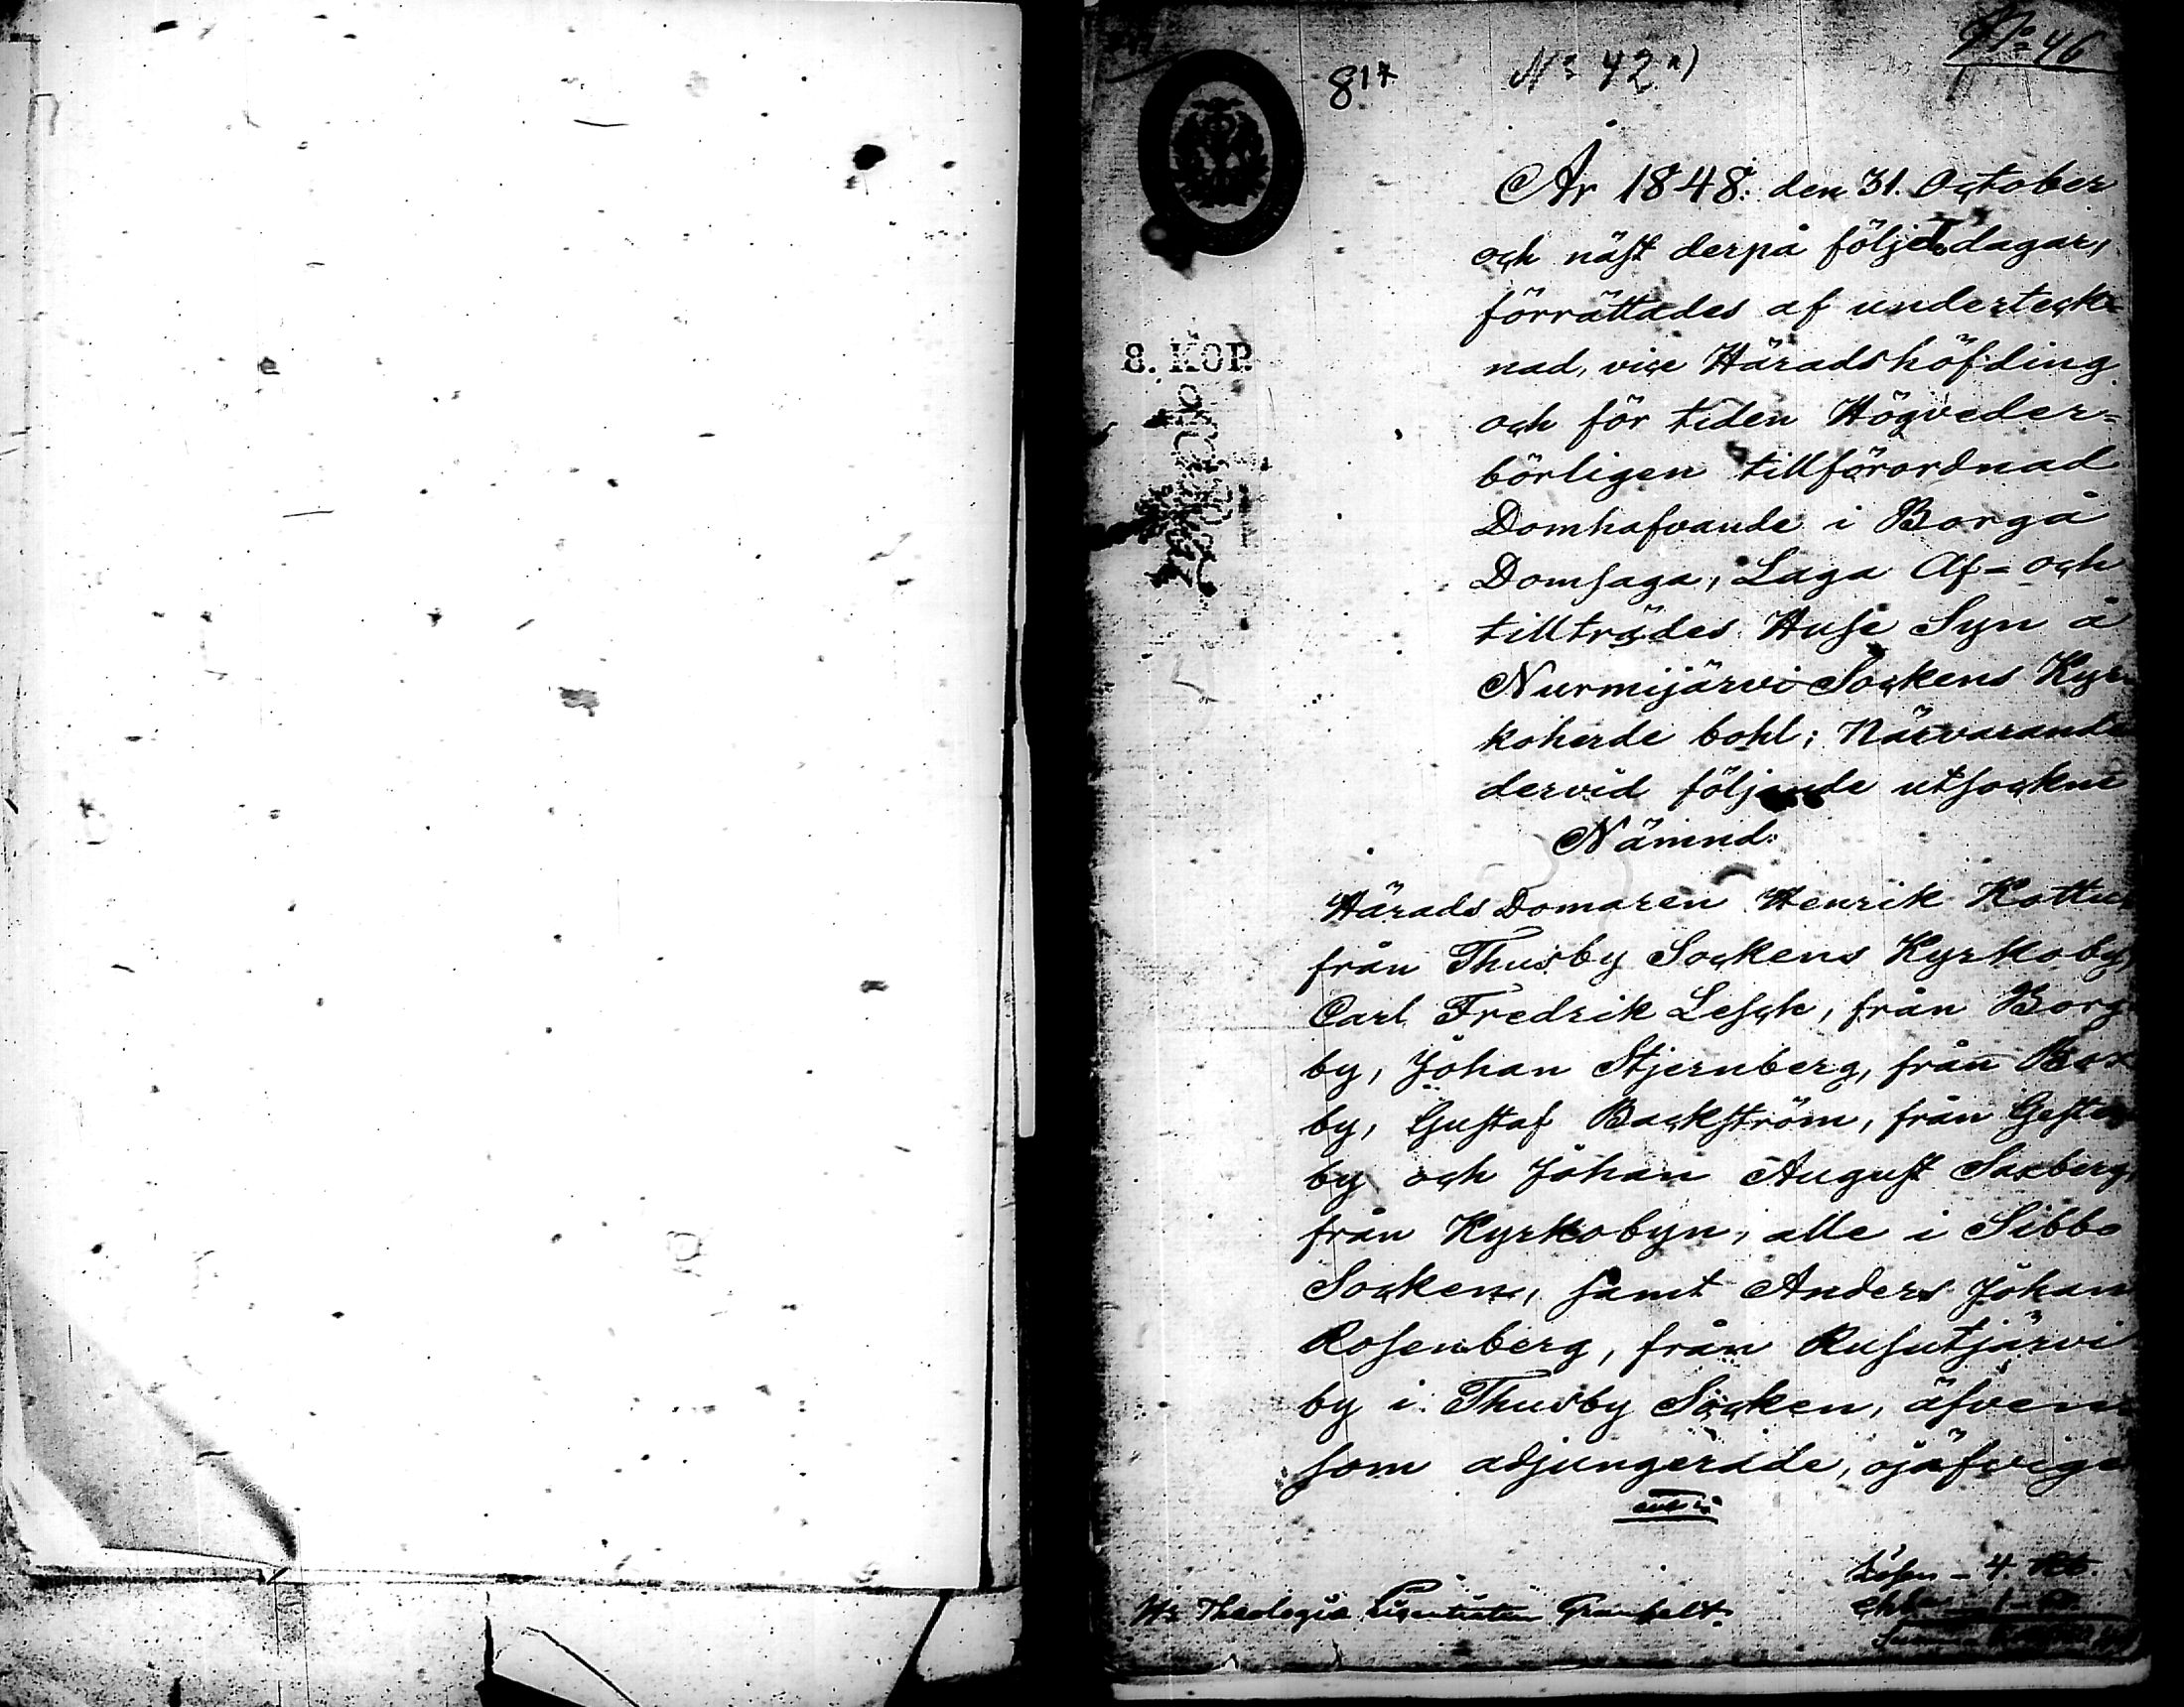 No 46
817
No 42 a)
8. KOP.
År 1848: den 31. October
och näst derpå följde dagar,
förrättades af underteck=
nad, vice Häradshöfding
och för tiden Högveder=
börligen tillförordnad
Domhafvande i Borgå
Domsaga, Laga Af- och
tillträdes Huse Syn å
Nurmijärvi Sockens Kyr-
koherde bohl; Närvarande
dervid följande utsockne
Nämnd:
Härads Domaren Henrik
från Thusby Sockens Kyrkoby,
Carl Fredrik Lesch, från Borg
by, Johan Stjernberg, från Box
by, Gustaf Backström, från
by och Johan August Saxberg,
från Kyrkobyn, alle i Sibbo
Socken, samt Anders Johan
Rosenberg, från Rusutjärvi
by i Thusby Socken, äfven
som adjungerade, ojäfvige
Lösen - 4. Rb.
Hr Theologiæ Licentiaten Granfelt